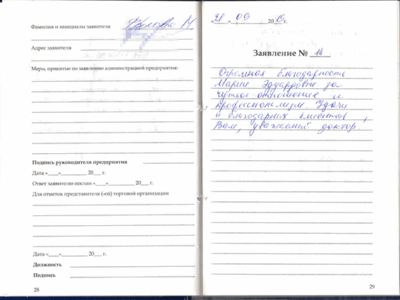 Фамилия и инициалы заявителя
Адрес заявителя
Меры, принятые по заявлению администрацией предприятия:
Подпись руководителя предприятия
Дата «____»__________ 20___ г.
Ответ заявителю послан «____»__________ 20___ г.
Для отметок представителя (-ей) торговой организации
Дата «____»__________ 20___ г.
Должность
Подпись
28
28 09 20 г.
Заявление №
Огромная благодарность
Марине Эдуардовне за
чуткое отношение и
профессионализм. Удачи
и благодарных клиентов
Вам, уважаемый доктор.
29